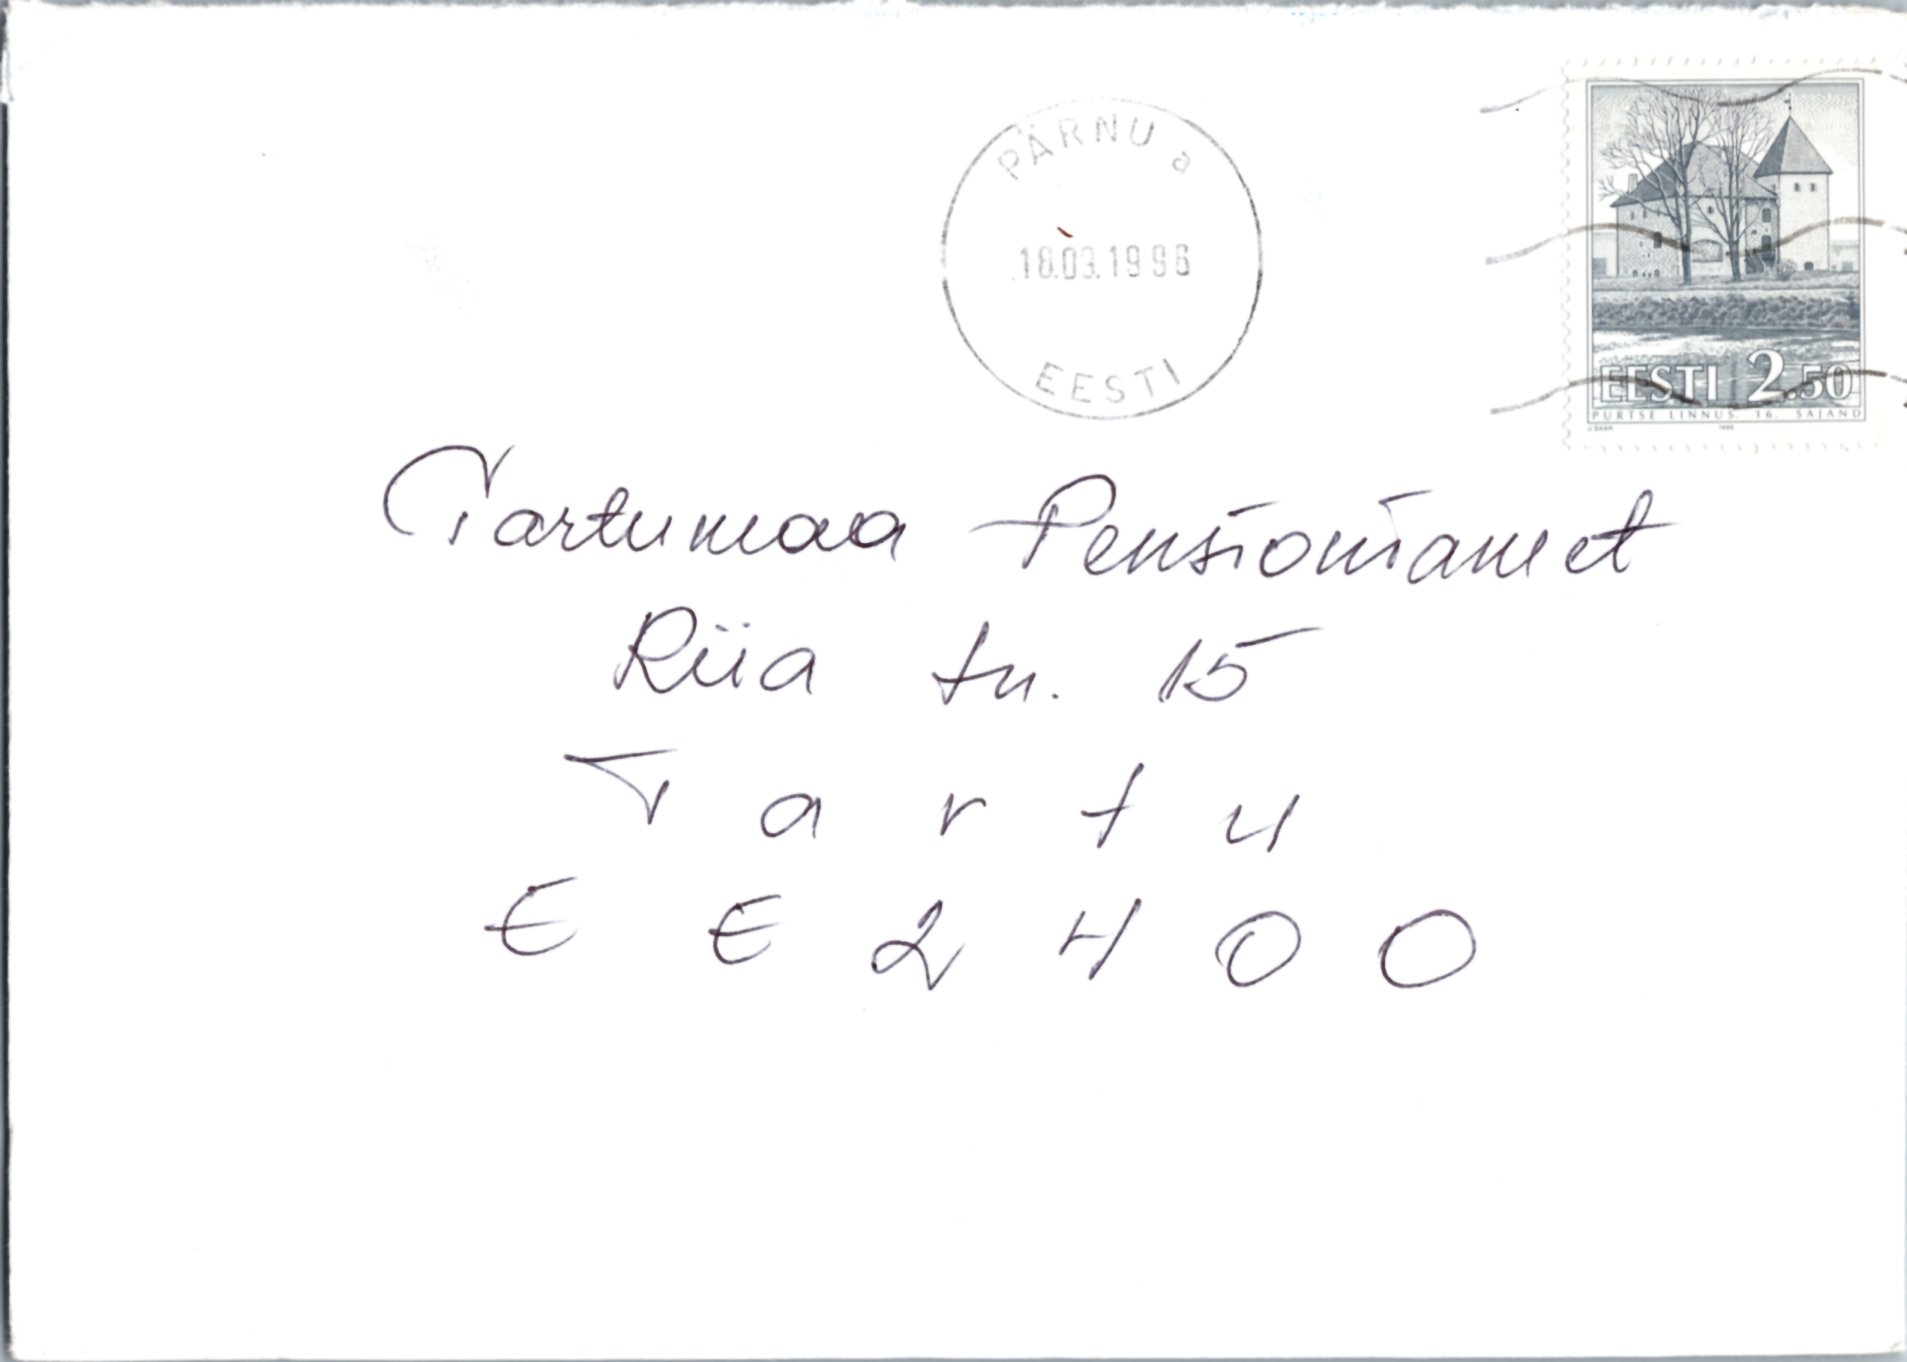 PÄRNU a
18.03.1996
EESTI
EESTI 2.50
PURTSE LINNUS. 16. SAJAND
J.SAAR 1996
Tartumaa Pensioniamet
Riia tn. 15
Tartu
EE2400